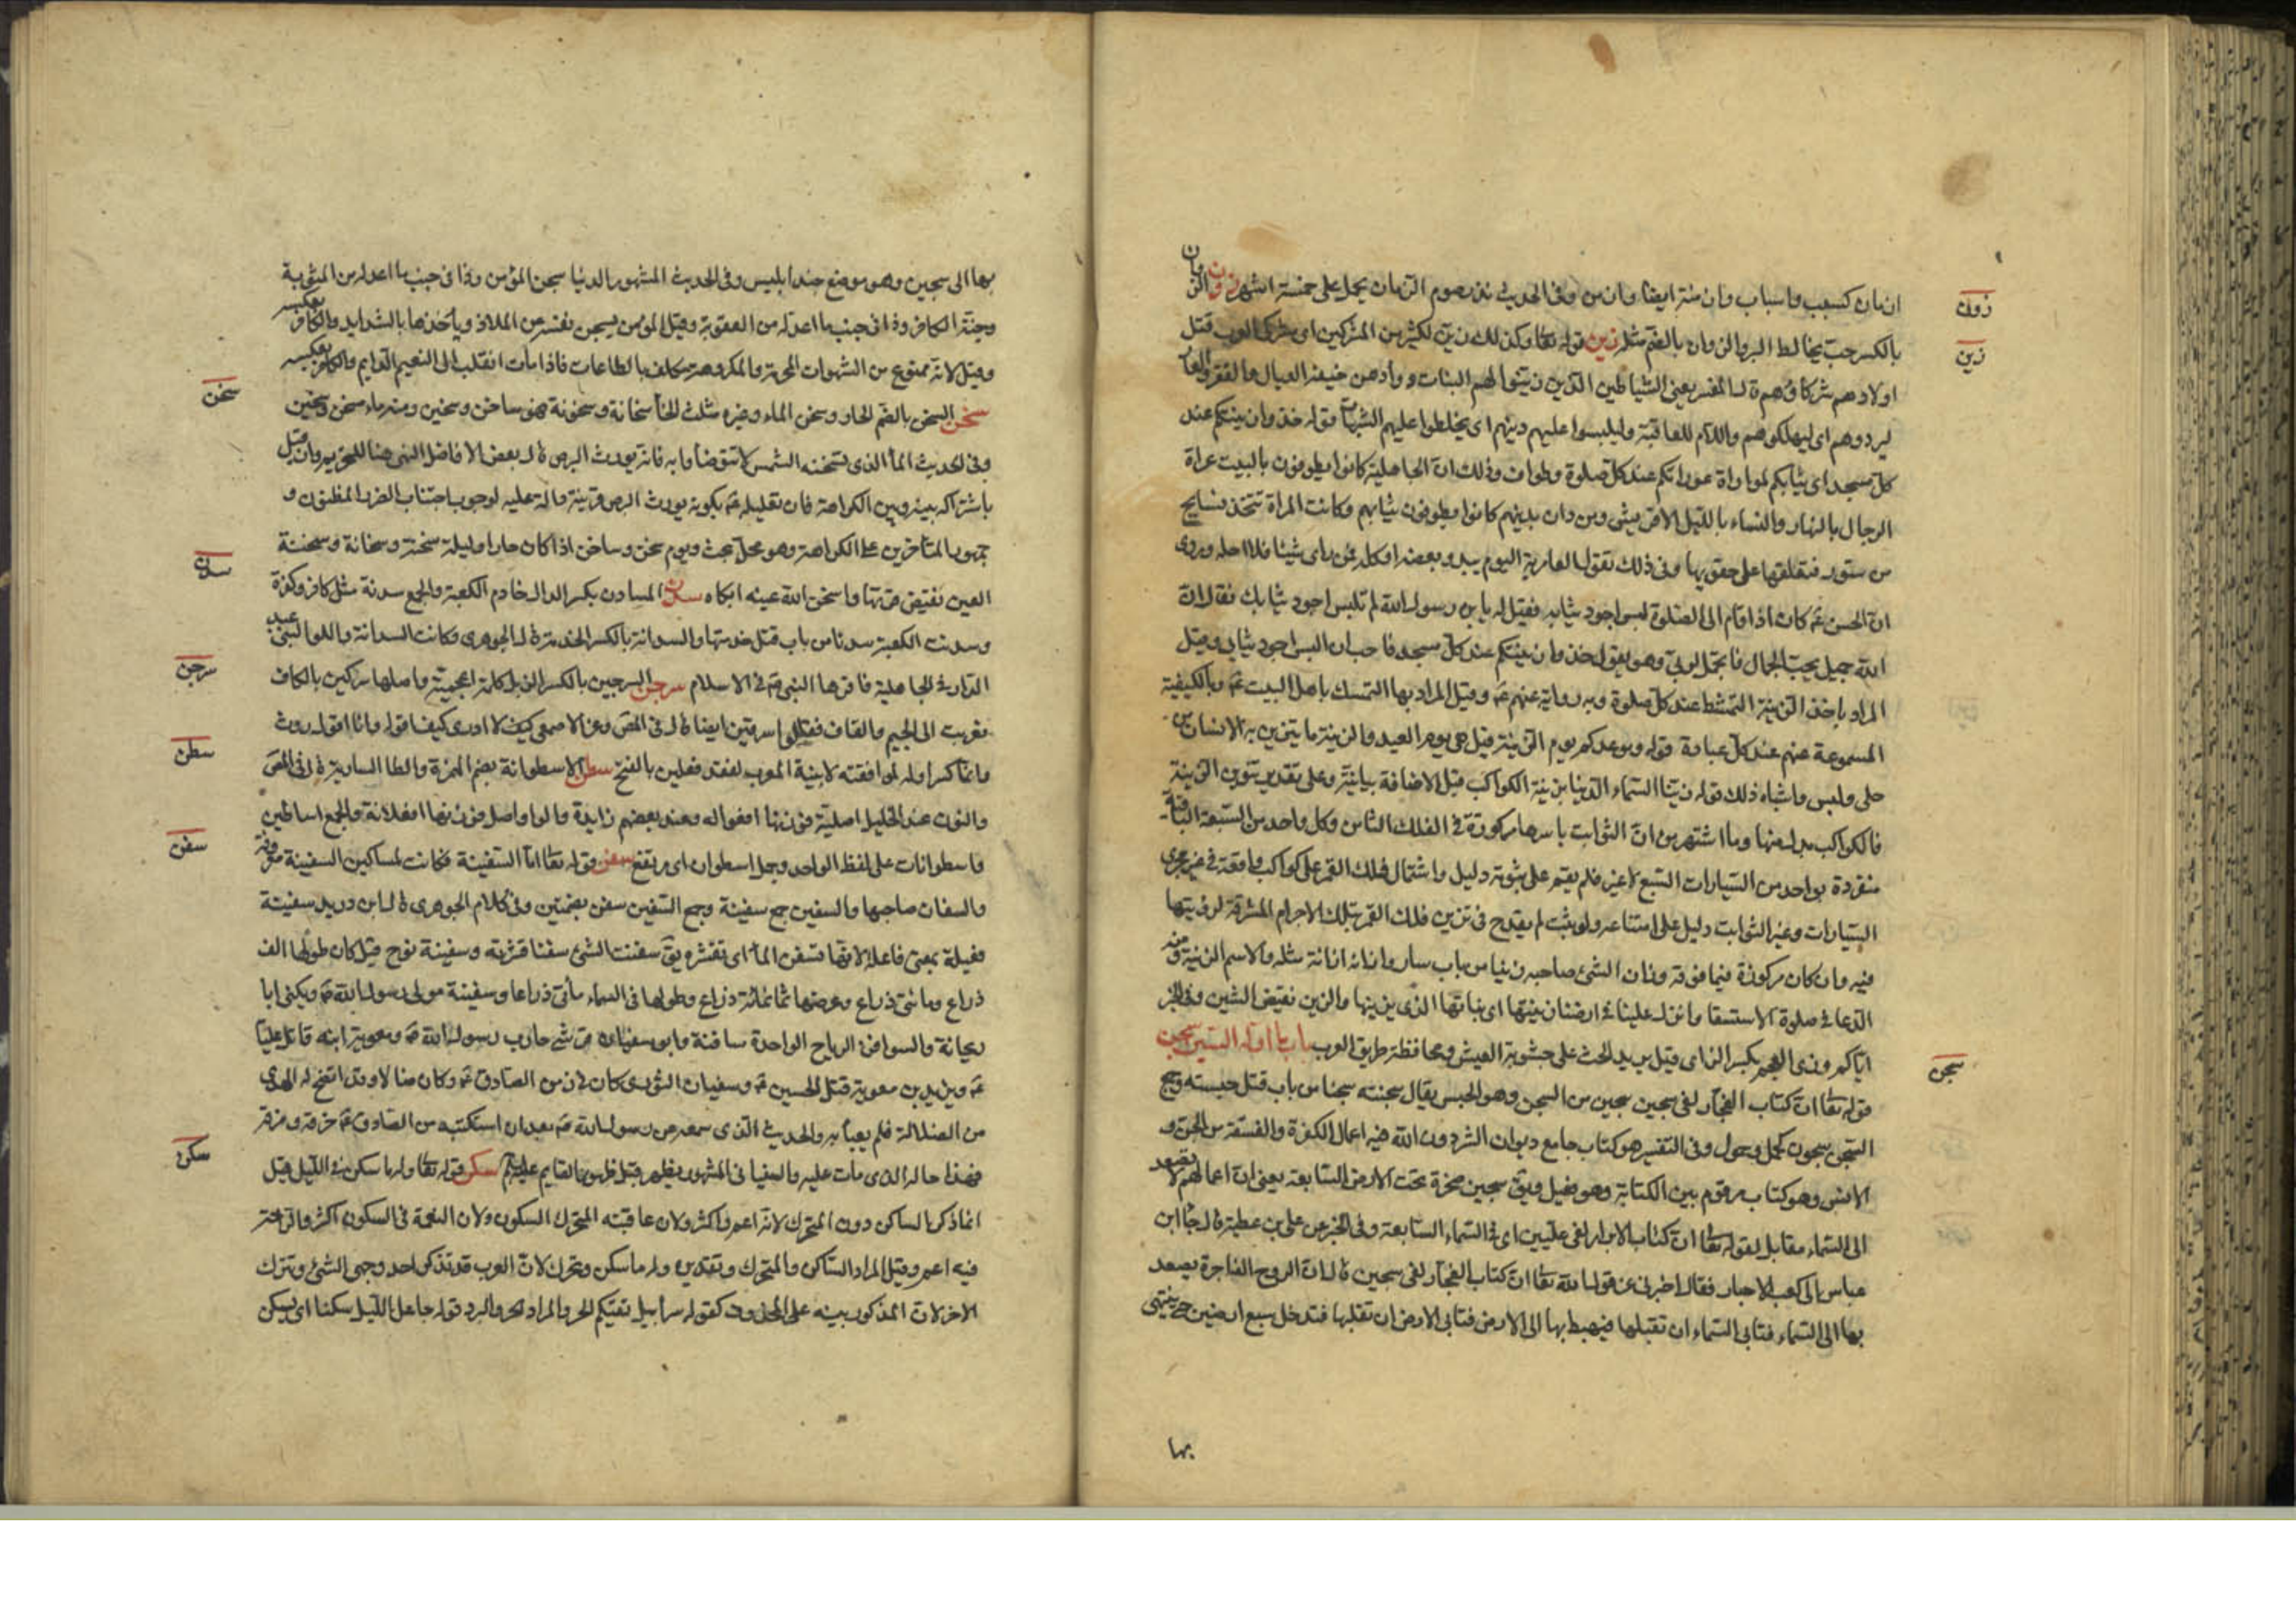 ازمان كسبب واسباب وازمنة ايضا وازمن وفى الحديث نذر صوم الزمان يحمل على خمسة اشهر زون الزوان
بالكسر حب يخالط البر والزوان بالضم مثله زين قوله تعا وكذلك زين لكثير من المشركين اى مشركى العرب قتل
اولادهم شركاؤهم قال المفسر يعنى الشياطين الذين زينوا لهم البنات ووأدهن خيفة العيال والفقر والعار
ليردوهم اى ليهلكوهم واللام للعاقبة وليلبسوا عليهم دينهم اى يخلطوا عليهم الشبهات قوله خذوا زينتكم عند
كل مسجد اى ثيابكم لمواراة عوراتكم عند كل صلوة وطواف وذلك ان الجاهلية كانوا يطوفون بالبيت عراة
الرجال بالنهار والنساء بالليل الا قريش ومن دان بدينهم كانوا يطوفون بثيابهم وكانت المراة تتخذ نسايج
من ستور فتعلقها على حقويها وفى ذلك تقول العامرية اليوم يبدو بعضه او كله فمن راى شيئا فلا احله وروى
ان الحسن عم كان اذا قام الى الصلوة لبس اجود ثيابه فقيل له يا بن رسول الله لم تلبس اجود ثيابك فقال ان
الله جميل يحب الجمال فاتجمل لربى وهو يقول خذوا زينتكم عند كل مسجد فاحب ان البس اجود ثيابى وقيل
المراد باخذ الزينة التمشط عند كل صلوة وبه رواية عنهم عم وقيل المراد بها التمسك باهل البيت عم وبالكيفية
المسموعة عنهم عند كل عبادة قوله موعدكم يوم الزينة قيل هى يوم العيد والزينة ما يتزين به الانسان من
حلى ولبس واشباه ذلك قوله زينا السماء الدنيا بزينة الكواكب قيل الاضافة بيانية وعلى تقدير تنوين الزينة
فالكواكب بدل منها وما اشتهر من ان الثوابت باسرها مركوزة فى الفلك الثامن وكل واحد من السبعة الباقية
منفردة بواحد من السيارات السبع لا غير فلم يقم على ثبوته دليل واشتمال فلك القمر على كواكب واقعة فى غير مجرى
السيارات وغير الثوابت دليل على امتناعه ولو ثبت لم يقدح فى تزين فلك القمر بتلك الاجرام المشرقة لرؤيتها
فيه وان كان مركوزة فيما فوقه وزان الشئ صاحبه زينا من باب سار وازانه ازانة مثله والاسم الزينة ومنه
الدعا فى صلوة الاستسقا وانزل علينا فى ارضنا زينتها اى نباتها الذى يزينها والزين نقيض الشين وفى الخبر
اياكم وزى العجم بكسر الزاى قيل يريد الحث على خشونة العيش ومحافظة طريق العرب باب ما اوله السين سجن
قوله تعا ان كتاب الفجار لفى سجين سجين من السجن وهو الحبس يقال سجنته سجنا من باب قتل حبسته وجمع
السجن سجون كحمل وحمول وفى التفسير هو كتاب جامع ديوان الشر دون الله فيه اعمال الكفرة والفسقة من الجن و
الانس وهو كتاب مرقوم بين الكتابة وهو فعيل ويق سجين صخرة تحت الارض السابعة يعنى ان اعمالهم لا تصعد
الى السماء مقابل لقوله تعا ان كتاب الابرار لفى عليين اى فى السماء السابعة وفى الخبر عن على بن عطية قال جاء ابن
عباس الى كعب الاحبار فقال اخبرنى عن قول الله تعا ان كتاب الفجار لفى سجين قال ان الروح الفاجرة يصعد
بها الى السماء فتابى السماء ان تقبلها فيهبط بها الى الارض فتابى الارض ان تقبلها فتدخل سبع ارضين حتى ينتهى
بها
زون
زين
سجن
بها الى سجين وهو موضع جند ابليس وفى الحديث المشهور الدنيا سجن المؤمن وذا فى جنب ما اعد له من المثوبة
وجنة الكافر وذا فى جنب ما اعد له من العقوبة وقيل المؤمن يسجن نفسه عن الملاذ وياخذها بالشدايد والكافر بعكسه
وقيل لانه ممنوع من الشهوات المحرمة والمكروهة مكلف بالطاعات فاذا مات انقلب الى النعيم الدايم والكافر بعكسه
سخن السخن بالضم الحار وسخن الماء وغيره مثلث الخا سخانة وسخونة فهو ساخن وسخين ومنه ماء سخن وسخين
وفى الحديث الما الذى تسخنه الشمس لا تتوضأوا به فانه يورث البرص قال بعض الافاضل النهى هنا للتحريم وان قيل
باشتراكه بينه وبين الكراهة فان تعليله عم بكونه يورث البرص قرينة دالة عليه لوجوب اجتناب الضرر المظنون و
جمهور المتأخرين على الكراهة وهو محل بحث ويوم سخن وساخن اذا كان حارا وليلة سخنة وسخانة وسخنة
العين نقيض قرتها واسخن الله عينه ابكاه سدن السادن بكسر الدال خادم الكعبة والجمع سدنة مثل كافر وكفرة
وسدنت الكعبة سدنا من باب قتل خدمتها والسدانة بالكسر الخدمة قال الجوهرى وكانت السدانة واللوا لبنى عبد
الدار فى الجاهلية فاقرها النبى ص فى الاسلام سرجن السرجين بالكسر الزبل كلمة اعجمية واصلها سركين بالكاف
فعربت الى الجيم والقاف فقالوا سرقين ايضا قال فى المص وعن الاصمعى كيف لا ادرى كيف اقوله وانما اقول روث
وانما كسر اوله لموافقته لابنية العرب لفقد فعلين بالفتح سطن الاسطوانة بضم الهمزة والطا السارية قال فى المص
والنون عند الخليل اصلية فوزنها افعواله وعند بعضهم زايدة والواو اصل فوزنها افعلانة والجمع اساطين
واسطوانات على لفظ الواحد وجمل اسطوان اى مرتفع سفن قوله تعا اما السفينة فكانت لمساكين السفينة معروفة
والسفان صاحبها والسفين جمع سفينة وجمع السفين سفن بضمتين وفى كلام الجوهرى قال ابن دريد سفينة
فعيلة بمعنى فاعلة لانها تسفن الما اى تقشره يق سفنت الشئ سفنا قشرته وسفينة نوح قيل كان طولها الف
ذراع ومائتى ذراع وعرضها ثمانمائة ذراع وطولها فى السماء مأتى ذراعا وسفينة مولى رسول الله ص ويكنى ابا
ريحانة والسوافن الرياح الواحدة سافنة وابو سفيان حارب رسول الله ص ومعوية ابنه قاتل عليا
عم ويزيد بن معوية قتل الحسين عم وسفيان الثورى كان فى زمن الصادق عم وكان ضالا وقد اتضح له الهدى
من الضلالة فلم يعبأ به والحديث الذى سمعه من رسول الله ص بعد ان استكتبه من الصادق عم خرقه ومزقه
فهذا حاله الذى مات عليه والسفيانى المشهور يظهر قبل ظهور القايم عليه السلم سكن قوله تعا وله ما سكن فى الليل قيل
انما ذكر الساكن دون المتحرك لانه اعم واكثر ولان عاقبة المتحرك السكون ولان النعمة فى السكون اكثر والراحة
فيه اعم وقيل المراد الساكن والمتحرك وتقديره وله ما سكن وتحرك لان العرب قد تذكر احد وجهى الشئ وتترك
الاخر لان المذكور بينه على المحذوف كقوله سرابيل تقيكم الحر والمراد الحر والبرد قوله جاعل الليل سكنا اى يسكن
سخن
سدن
سرجن
سطن
سفن
سكن